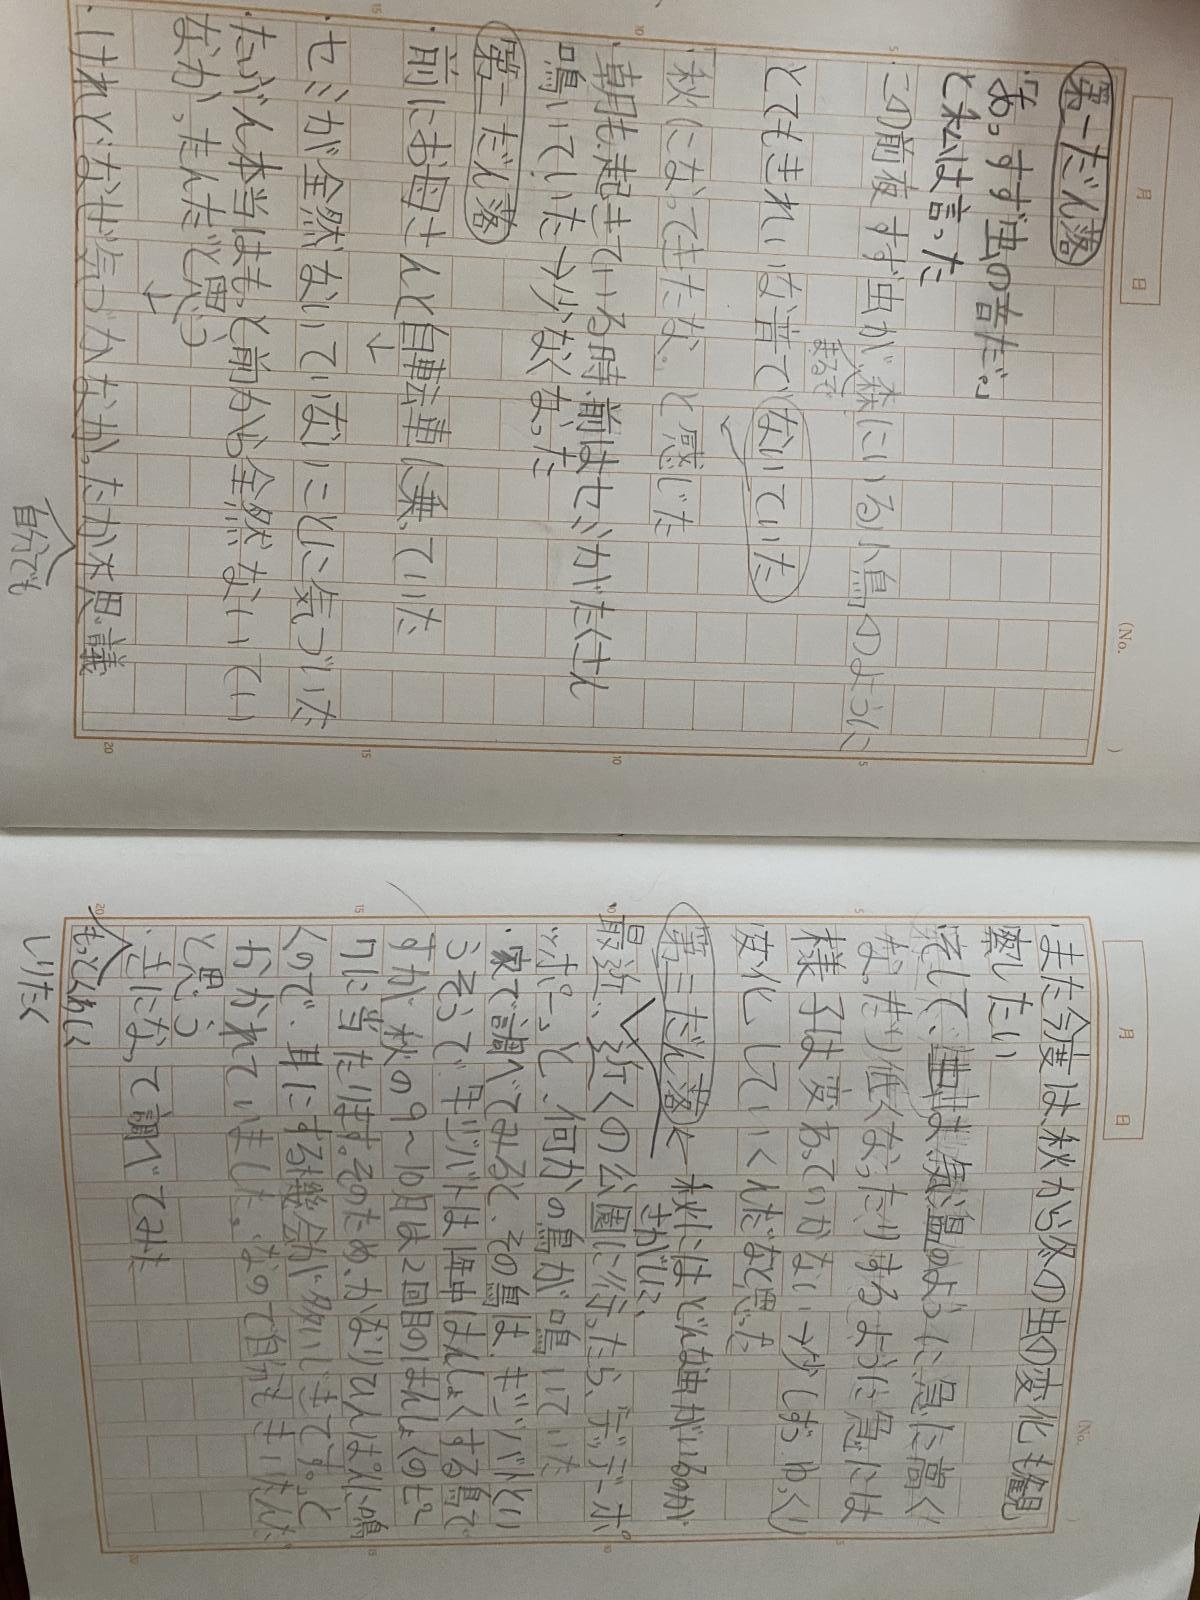 第一だん落
「あっすず虫の音だ。」
と私は言った
この前夜すず虫が、森にいる小鳥のように
まるで
とてもきれいな音でないていた
秋になってきたな。と感じた
朝も起きている時、前はセミがたくさん
鳴いていた→少なくなった
第二だん落
・前にお母さんと自転車に乗っていた
↓
セミが全然ないていないことに気づいた
・たぶん本当はもっと前から全然ないてい
なかったんだと思う
↓
・けれどなぜ気づかなかったか不思議
自分でも
(No. )
月 日
・また今度は秋から冬の虫の変化も観
察したい
そして、虫は気温のように急に高く
なったり低くなったりするように急には
様子は変わっていかない→少しおっくり
変化していくんだなと思った
第三だん落←秋にはどんな虫がいるのか
さがしに、
最近、近くの公園に行ったら、デッデーポ
ッポーっと、何かの鳥が鳴いていた
・家で調べてみると、その鳥は、キジバトとい
うそうで「キジバトは年中はんしょくする鳥で
すが、秋の9～10月は2回目のはんしょくのピー
クに当たります。そのため、かなりひんぱんに鳴
くので、耳にする機会が多いじきです。」と
おかれていました。なので自分でもきいたんだ
と思う
・虫になって調べてみた
もっとくわしく
しりたく
(No. )
月 日